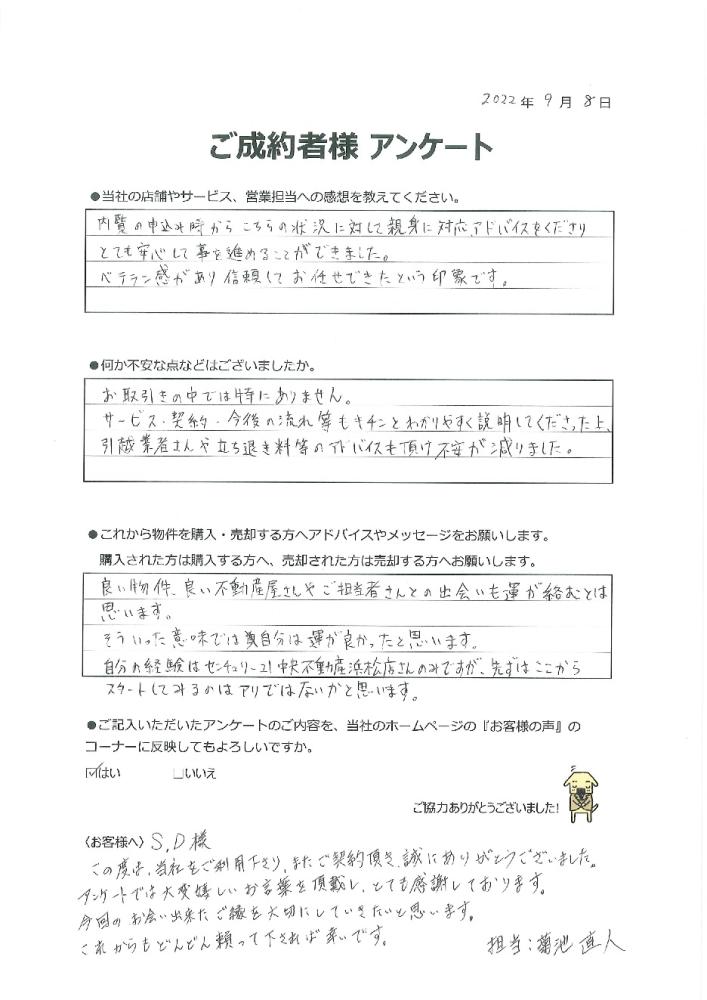 2022年 9月 8日
ご成約者様 アンケート
●当社の店舗やサービス、営業担当への感想を教えてください。
内覧の申込み時から こちらの状況に対して親身に対応、アドバイスをくださり
とても安心して事を進めることができました。
ベテラン感があり信頼してお任せできたという印象です。
●何か不安な点などはございましたか。
お取引きの中では特にありません。
サービス・契約・今後の流れ等もキチンとわかりやすく説明してくださった上、
引越業者さんや立ち退き料等のアドバイスも頂け不安が減りました。
●これから物件を購入・売却する方へアドバイスやメッセージをお願いします。
購入された方は購入する方へ、売却された方は売却する方へお願いします。
良い物件、良い不動産屋さんやご担当者さんとの出会いも運が絡むとは
思います。
そういった意味では自分は運が良かったと思います。
自分の経験はセンチュリー21中央不動産浜松店さんのみですが、先ずはここから
スタートしてみるのはアリではないかと思います。
●ご記入いただいたアンケートのご内容を、当社のホームページの『お客様の声』の
コーナーに反映してもよろしいですか。
☑はい □いいえ
ご協力ありがとうございました!
〈お客様へ〉 S.D様
この度は、当社をご利用下さり、またご契約頂き、誠にありがとうございました。
アンケートでは大変嬉しいお言葉を頂戴し、とても感謝しております。
今回のお会い出来たご縁を大切にしていきたいと思います。
これからもどんどん頼って下されば幸いです。
担当:菊池 直人